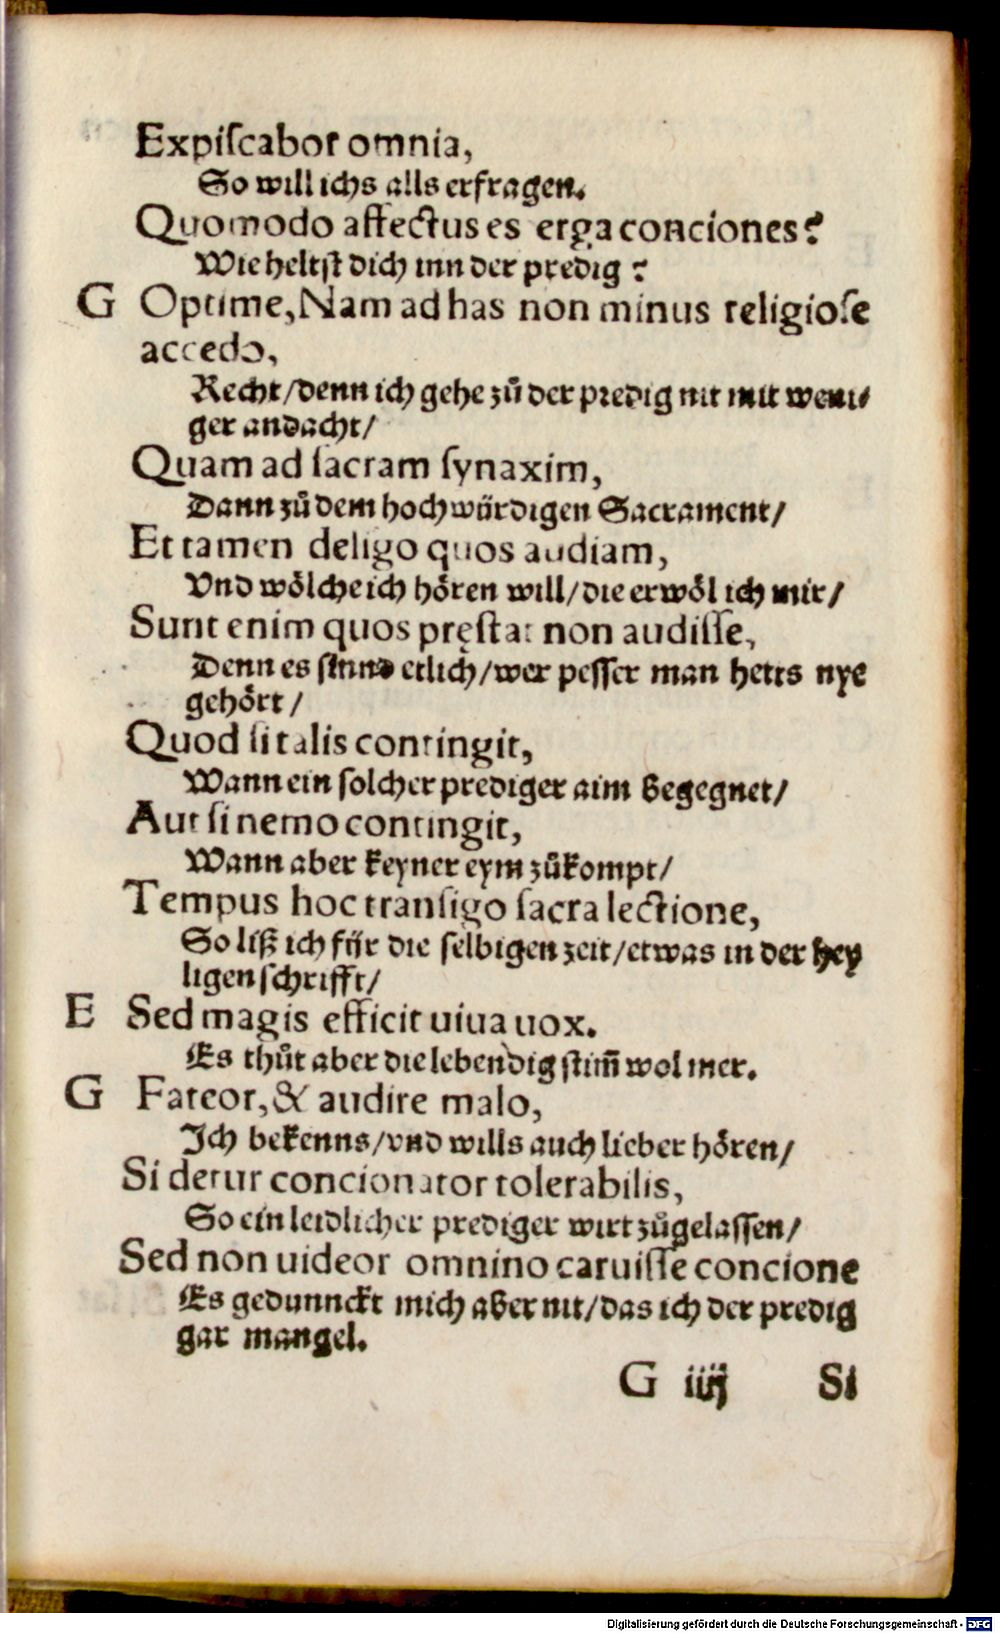 Expiſcabor omnia,
So will ichs alls erfragen.
Quomodo affectus es erga conciones?
Wie heltſt dich inn der predig?
G Optime, Nam ad has non minus religioſe
accedo,
Recht/denn ich gehe zů der predig nit mit weni⸗
ger andacht/
Quam ad ſacram ſynaxim,
Dann zů dem hochwürdigen Sacrament/
Et tamen deligo quos audiam,
Vnd wölche ich hören will/die erwöl ich mir/
Sunt enim quos pręſtat non audiſſe,
Denn es ſinnd etlich/wer peſſer man hetts nye
gehört/
Quod ſi talis contingit,
Wann ein ſolcher prediger aim begegnet/
Aut ſi nemo contingit,
Wann aber keyner eym zůkompt/
Tempus hoc tranſigo ſacra lectione,
So liß ich für die ſelbigen zeit/etwas in der hey
ligen ſchrifft/
E Sed magis efficit uiua uox.
Es thůt aber die lebendig ſtim̃ wol mer.
G Fateor, & audire malo,
Ich bekenns/vnd wills auch lieber hören/
Si detur concionator tolerabilis,
So ein leidlicher prediger wirt zůgelaſſen/
Sed non uideor omnino caruiſſe concione
Es gedunnckt mich aber nit/das ich der predig
gar mangel.
G iiij Si
Digitalisierung gefördert durch die Deutsche Forschungsgemeinschaft - DFG